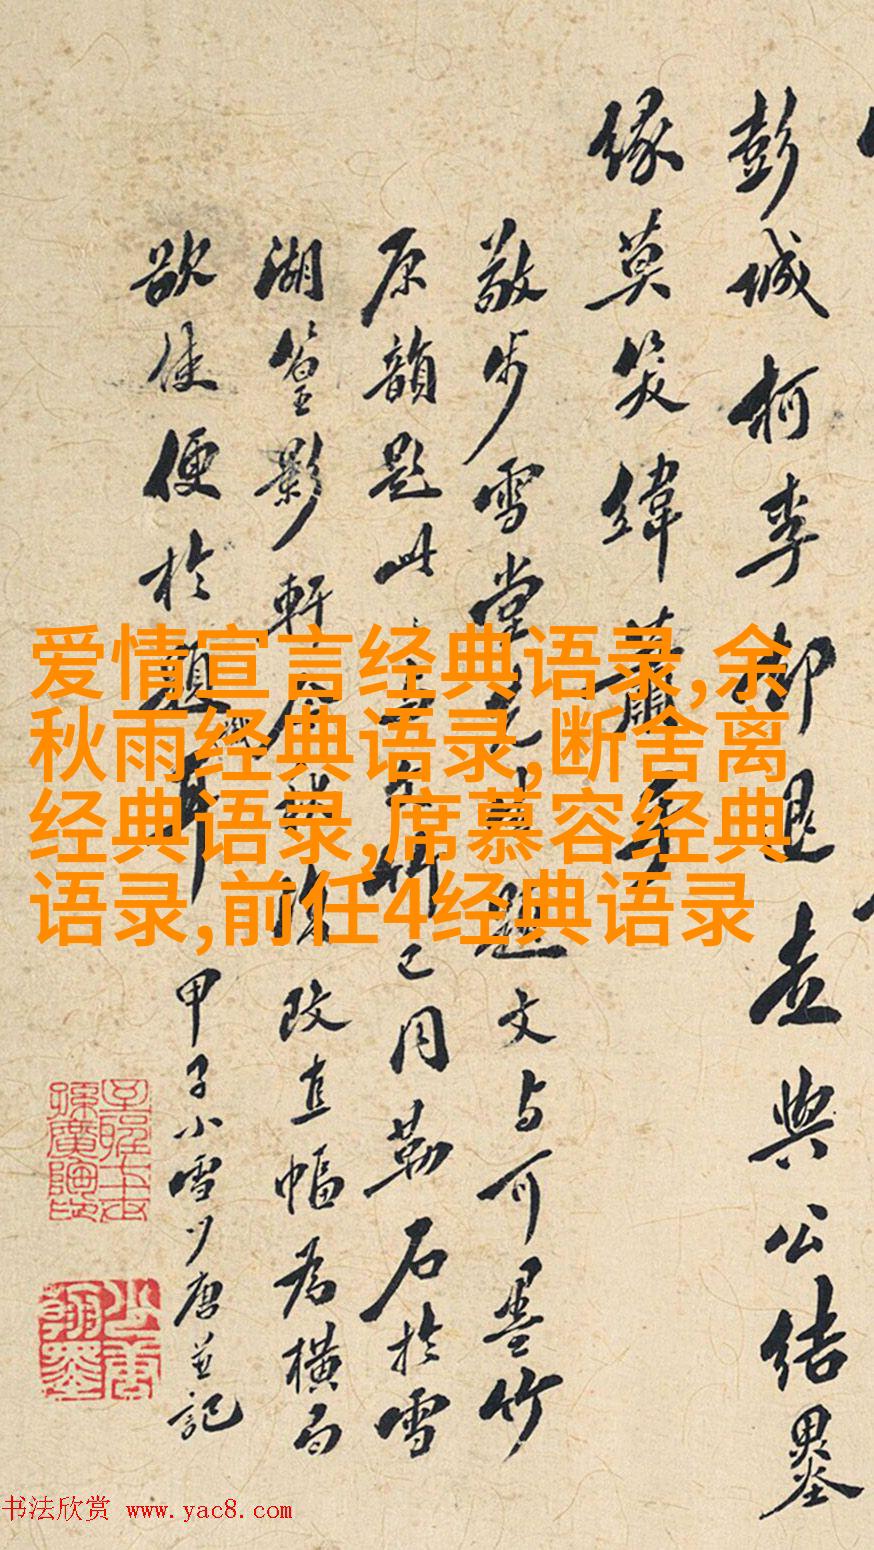 彭城柯季卻退走與公結墨
緣莫笑緯蕭手
敬步雪堂題文与可墨竹
原韻題此竹已同勒石於雪
湖篁影軒改直幅為橫
欲使便於題
甲子小雪少唐並記
爱情宣言经典语录,余
秋雨经典语录,断舍离
经典语录,席慕容经典
语录,前任4经典语录
少唐翰墨
书法欣赏 www.yac8.com